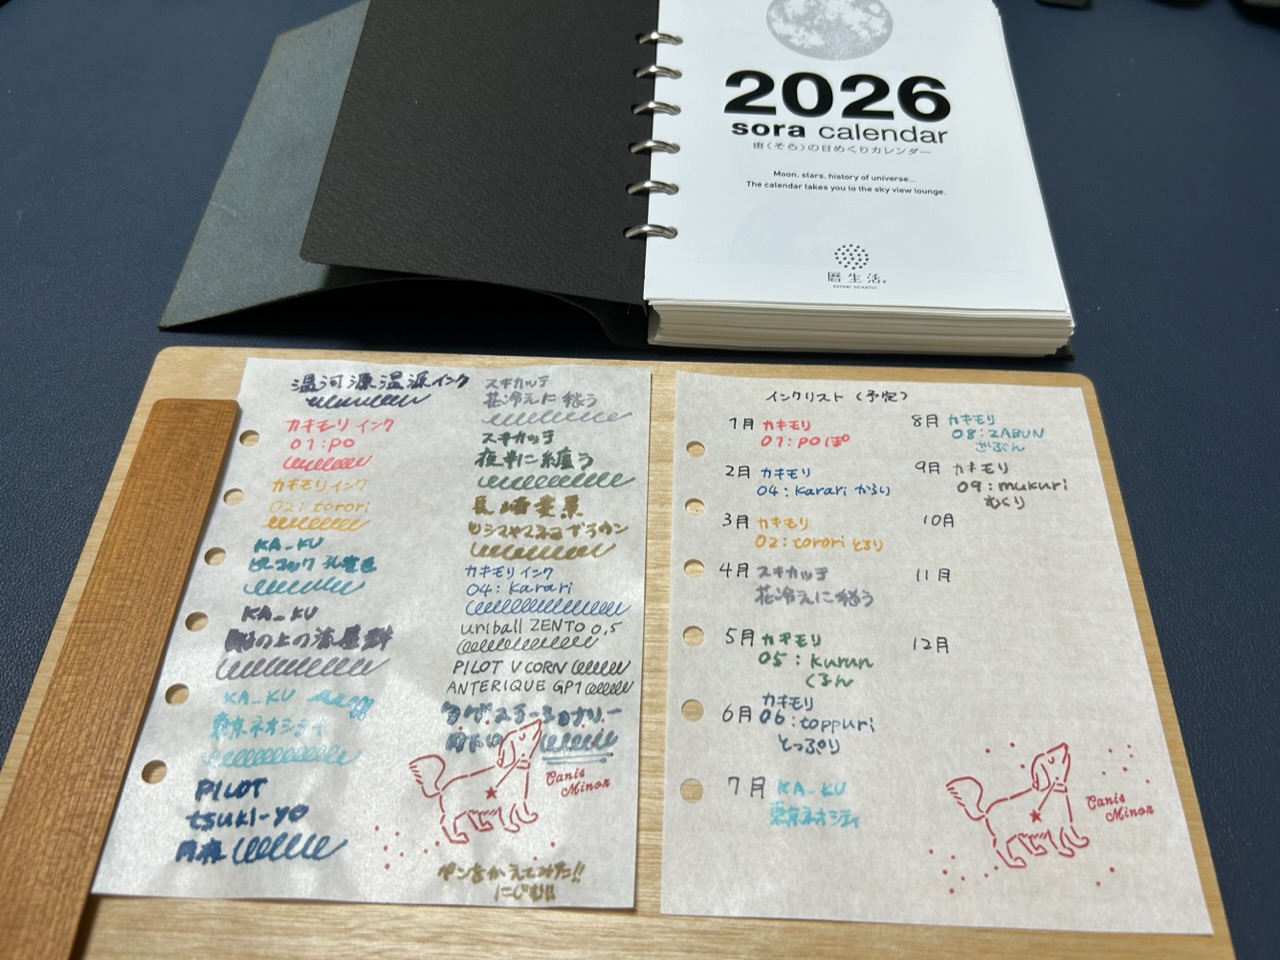 2026
sora calendar
宙(そら)の日めくりカレンダー
Moon, stars, history of universe...
The calendar takes you to the sky view lounge.
暦生活
KOYOMI SEIKATSU
湯河源温源インク
カキモリインク
01:po
カキモリインク
02:torori
KA_KU
ピーコック 孔雀色
KA_KU
の上の流星群
KA_KU
東京ネオシティ
PILOT
tsuki-yo
月夜
スキカッテ
花冷えに繕う
スキカッテ
夜半に纏う
長崎
ツシマヤマネコブラウン
カキモリインク
04:karari
uniball ZENTO 0.5
PILOT V CORN
ANTERIQUE GP1
ステーショナリー
Canis
Minor
ペンをかえてみた!!
にじむ!!
インクリスト(予定)
1月 カキモリ
01:po ぽ
2月 カキモリ
04:karari からり
3月 カキモリ
02:torori とろり
4月 スキカッテ
花冷えに繕う
5月 カキモリ
05:kurun
くるん
6月 カキモリ
06:toppuri
とっぷり
7月 KA_KU
東京ネオシティ
8月 カキモリ
08:ZABUN
ざぶん
9月 カキモリ
09:mukuri
むくり
10月
11月
12月
Canis
Minor